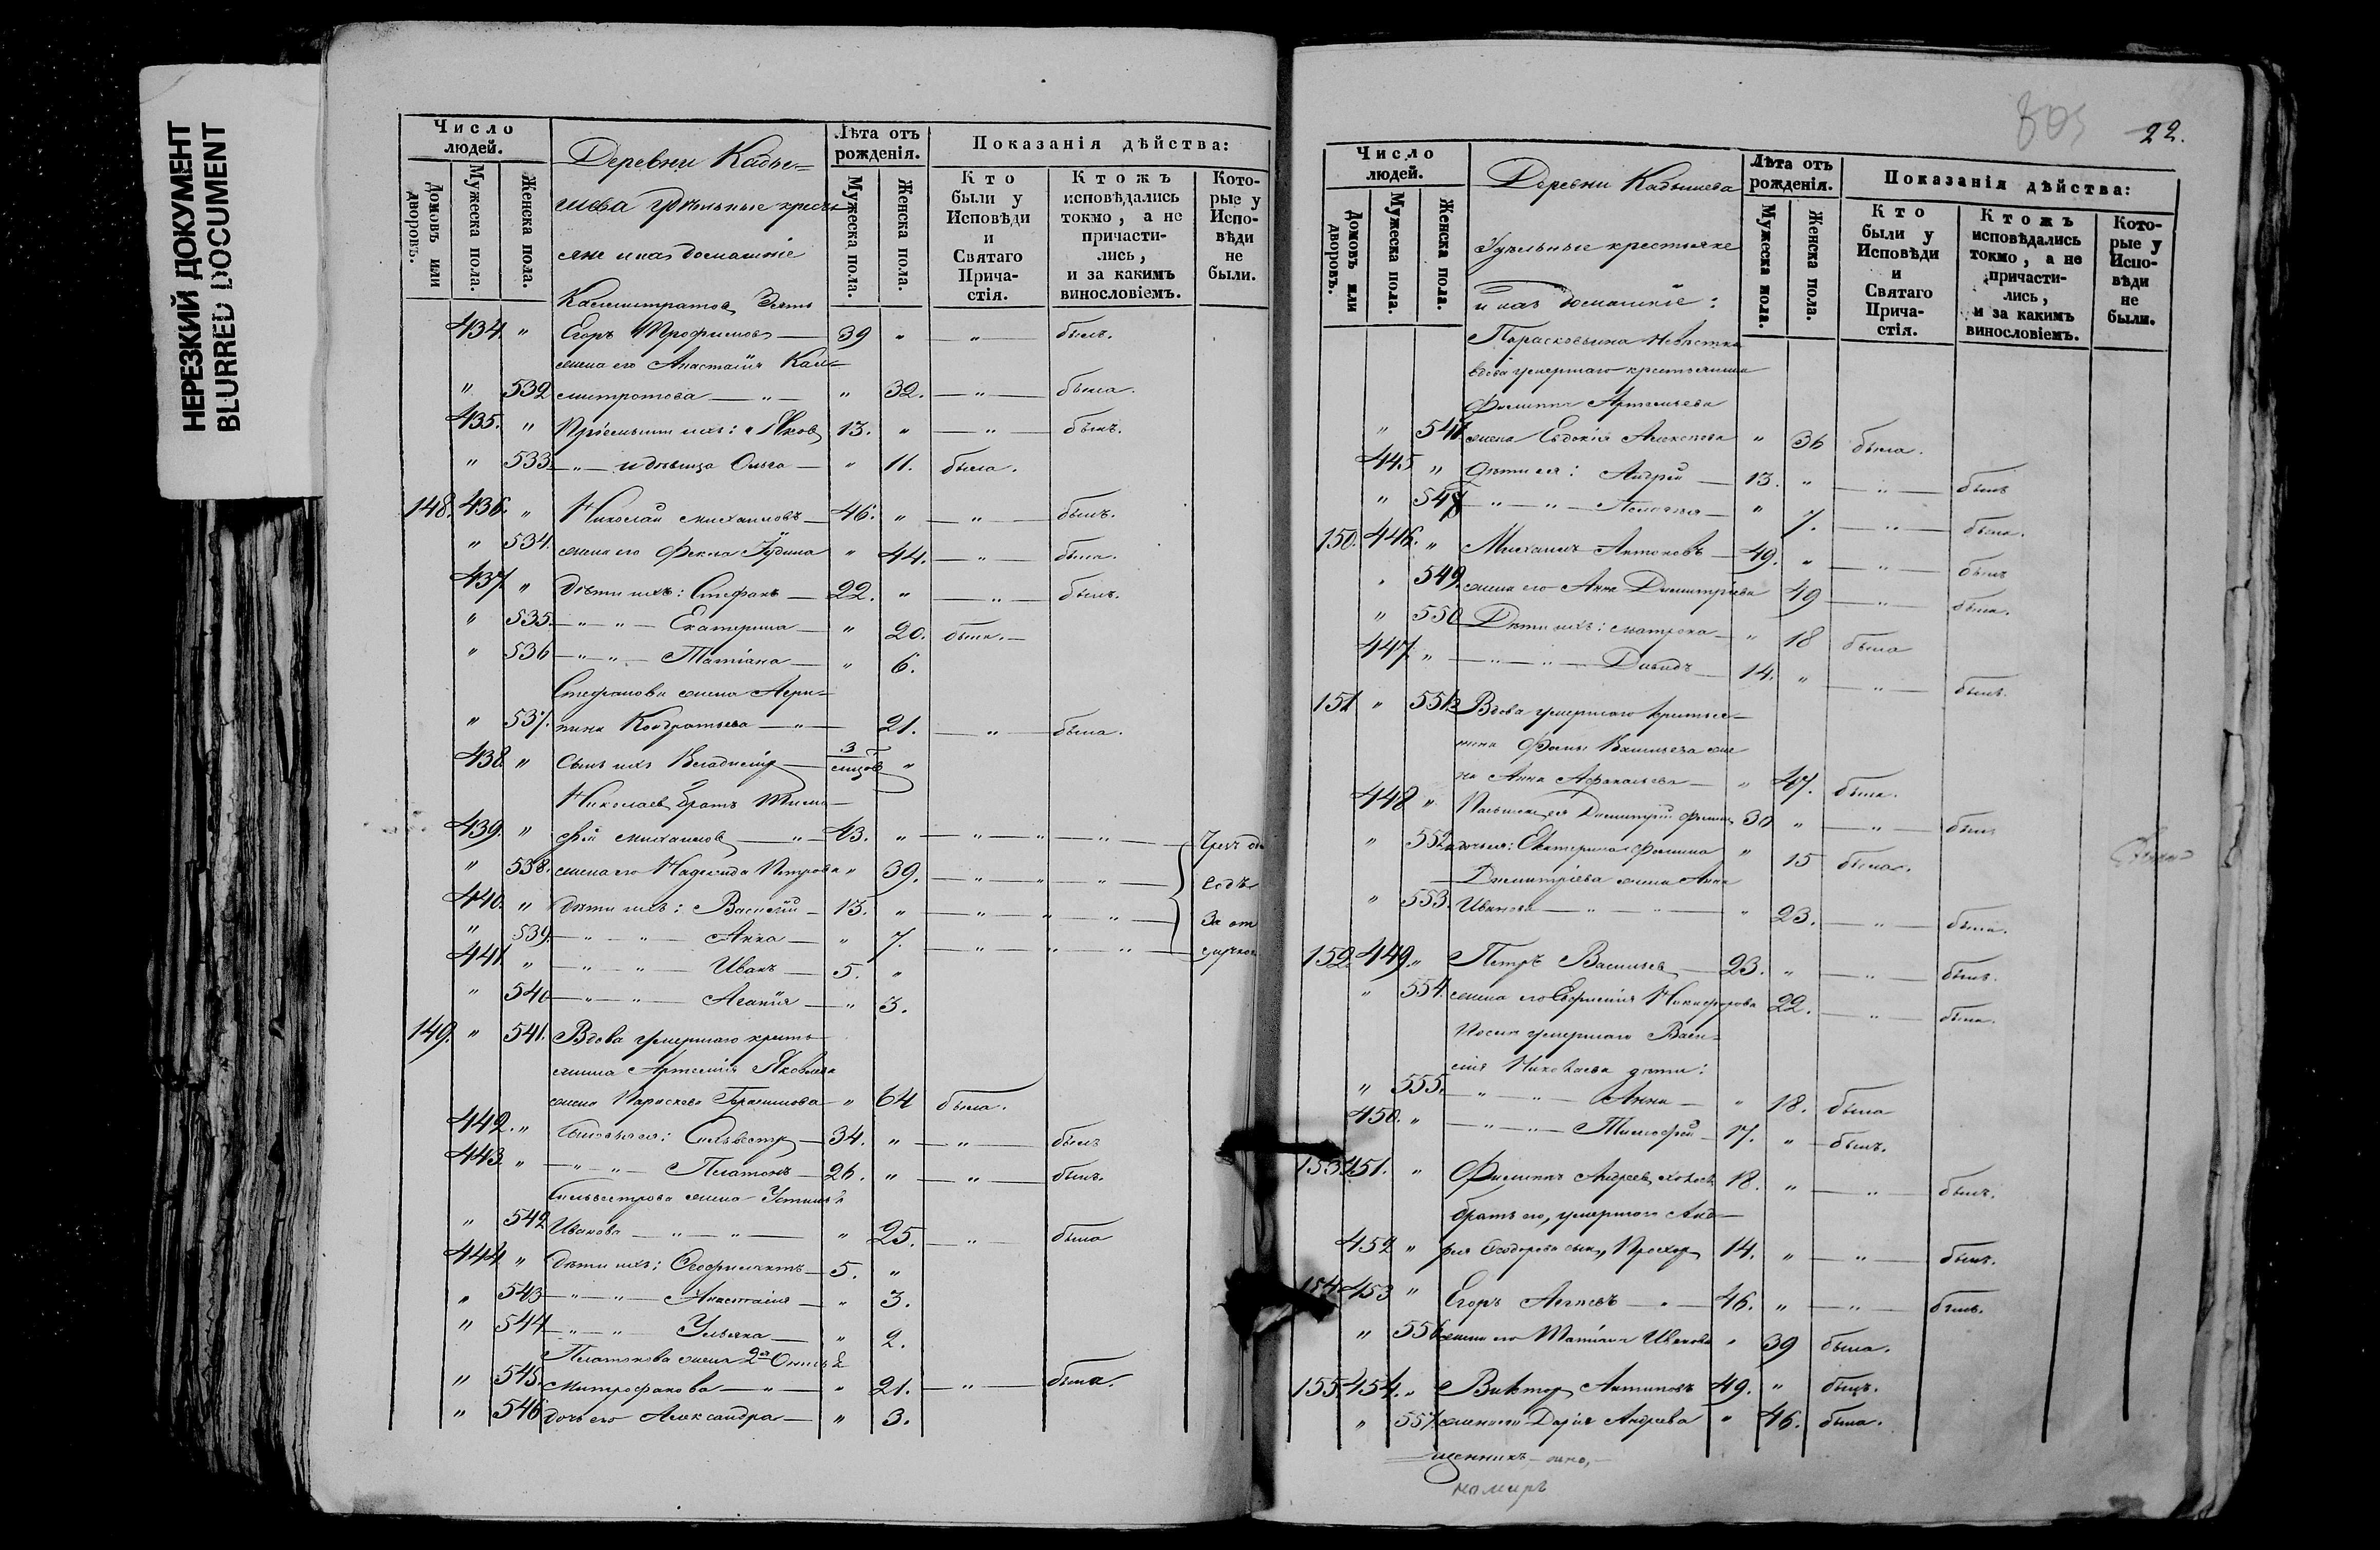 НЕРЕЗКИЙ ДОКУМЕНТ
BLURRED DOCUMENT
Число людей.
Домовъ или дворовъ.
Мужеска пола.
Женска пола.
Деревни Кадые=
шева удѣльные кресть
яне и ихъ домашніе
Лѣта отъ рожденія.
Мужеска пола.
Женска пола.
Показанія дѣйства:
Кто были у Исповѣди и Святаго Прича-стія.
Ктожъ исповѣдались токмо, а не причасти-лись, и за какимъ винословіемъ.
Кото-рые у Испо-вѣди не были.
Каллистратов Зять
434. " Егоръ Трофимов — 39 " — " — былъ.
жена его Анастасія Кал=
" 532 листратова — " — " 32. — " — была.
435. " Пріемыши ихъ: Яков 13. " — " — былъ.
" 533. — " — и дѣвица Ольга — " 11. была.
148. 436. " Николай Михаиловъ — 46. " — " — былъ.
" 534. жена его Фекла Іудина " 44. — " — была.
437. " Дѣти ихъ: Стефанъ — 22. " — " — былъ.
" 535. — " — " — Екатерина — " 20. была.
" 536 — " — " — Татіана — " 6.
Стефанова жена Агри=
" 537. пина Кондратьева — " — 21. — " — была.
438. " Сынъ ихъ Владимір — 3 "
Николаев братъ Тимо—
439. " фей Михаилов — " — 43. " — " — " — " —
" 538. жена его Надежда Петрова " 39. — " — " — " —
440. " Дѣти ихъ: Василій — 13. " — " — " — " — За от
" 539. — " — " — Анна — " 7. — " — " — " —
441. " — " — " — Иванъ — 5. "
" 540 — " — " — Агафія — " 3.
149. " 541. Вдова умершаго кресть
янина Артемія Яковлева
жена Параскева Герасимова " 64 была.
442. " Сыновья ея: Сильвестр — 34. " — " — былъ
443. " — " — " — Платонъ — 26. " — " — былъ.
Сильвестрова жена Устинья
" 542 Иванова — " — " — " 25. — " — была
444 " Дѣти ихъ: Феофилактъ — 5. "
" 543 — " — " — Анастасія — " 3.
" 544 — " — " Ульяна — " 2.
Платонова жена 2я
" 545. Митрофанова — " — " 21. — " — была.
" 546 дочь его Александра — " 3.
803
22.
Число людей.
Домовъ или дворовъ.
Мужеска пола.
Женска пола.
Деревни Кадышева
Удѣльные крестьяне
и ихъ домашніе:
Лѣта отъ рожденія.
Мужеска пола.
Женска пола.
Показанія дѣйства:
Кто были у Исповѣди и Святаго Прича-стія.
Ктожъ исповѣдались токмо, а не причасти-лись, и за какимъ винословіемъ.
Кото-рые у Испо-вѣди не были.
Парасковьина невѣстка
вдова умершаго крестьянина
Филиппа Артемьева
" 547 жена Евдокія Алексѣева " 36 была.
445 " Дѣти ея: Андрей — 13. " — " — былъ
" 548 — " — " — Пелагея — " 7. — " — была.
150. 446. " Михаилъ Антоновъ — 49. " — " — былъ
" 549. жена его Анна Димитріева 49 — " — была.
" 550 Дѣти ихъ: Матрона — " 18 была
447. " — " — " — Давидъ — 14. " — " — былъ.
151 " 551. Вдова умершаго крестья—
нина Фомы Васильева же
на Анна Афанасьева — " 47. была.
448 " Димитрій Фомин 30 " — " — былъ
" 552 Екатерина Фомина " 15 была.
Димитріева жена Анна
" 553. Иванова — " — " — " 23. — " — была.
152. 449. " Петръ Васильев — 23. " — " — былъ.
" 554. жена его Евфимія Никифорова 22. — " — была.
Послѣ умершаго Васи=
лія Николаева дѣти:
" 555. — " — " — Анна — " 18. была
450. " — " — " — Тимофей — 17. " — былъ.
153 451. " Филиппъ Андреев 18. " — " — былъ.
братъ его, умершаго Анд—
452 " рея Ѳеодорова сынъ Прохор 14. " — " — былъ.
154 453 " Егоръ Агѣевъ — " — 46. " — " — былъ.
" 556 жена его Татіана Иванова " 39 была.
155 454. " Викторъ Антиповъ 49. " былъ.
" 557. жена его Дарія Андреева " 46. была.
щенникъ